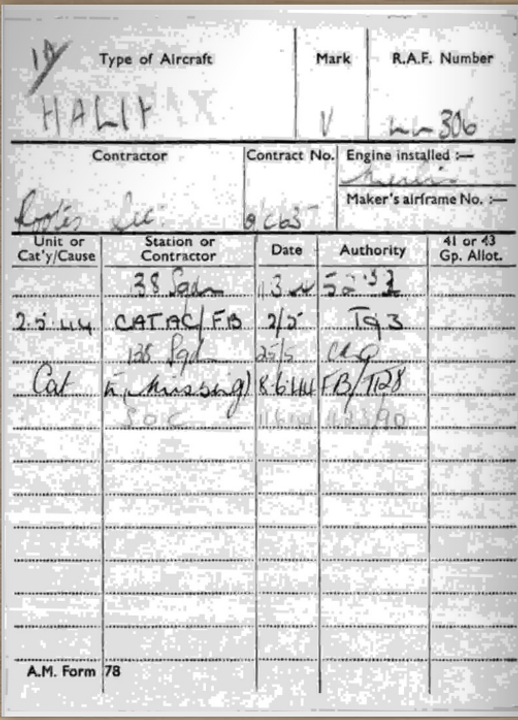 Type of Aircraft Mark R.A.F. Number
HALIFAX V LL306
Contractor Contract No. Engine installed :—
Merlin
Maker's airframe No. :—
Rootes Sec.
Unit or Cat'y/Cause Station or Contractor Date Authority 41 or 43 Gp. Allot.
38 Sqdn
2.5.44 CATAC/FB 2/5 T93
138 Sqd 25/5
Cat E (Missing) 8.6.44 FB/T128
S O C
A.M. Form 78